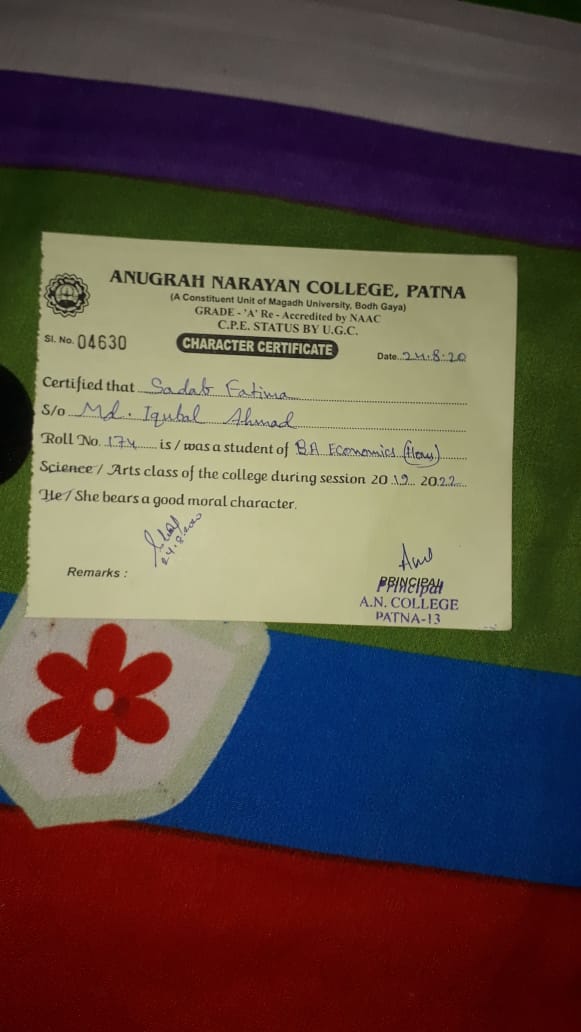 ANUGRAH NARAYAN COLLEGE, PATNA
(A Constituent Unit of Magadh University, Bodh Gaya)
GRADE - 'A' Re - Accredited by NAAC
C.P.E. STATUS BY U.G.C.
Sl. No. 04630
CHARACTER CERTIFICATE
Date..24.8.20
Certified that Sadab Fatima
S/o Md. Iqubal Ahmad
Roll No. 174 is / was a student of BA Economics (Hons)
Science / Arts class of the college during session 2019... 2022...
He / She bears a good moral character.
24.8.2020
Remarks :
PRINCIPAL
Principal
A.N. COLLEGE
PATNA-13